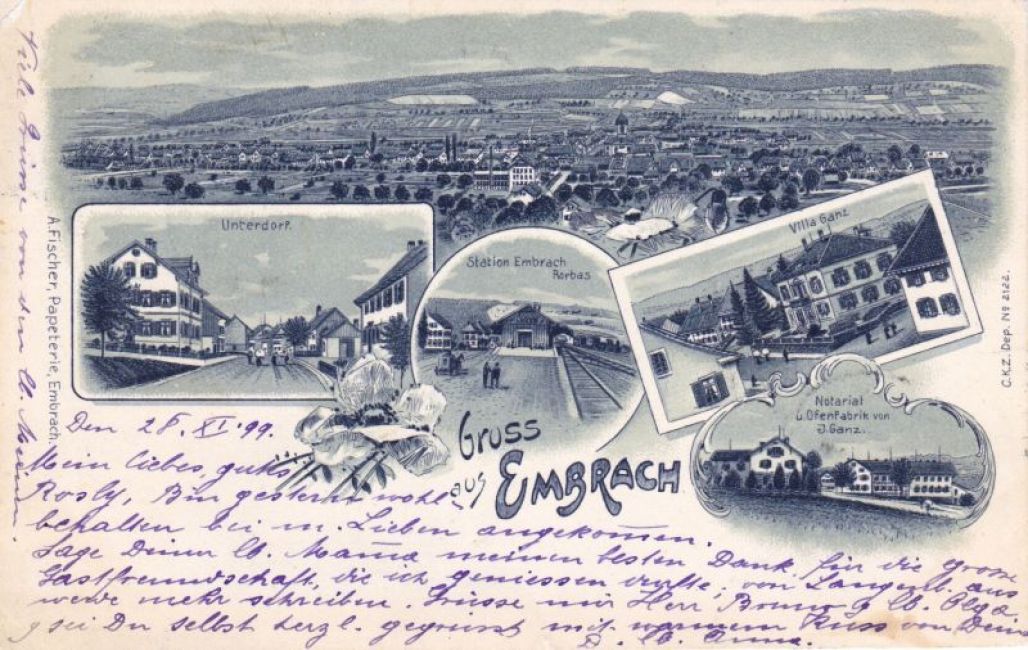 Unterdorf.
Station Embrach
Rorbas
Villa Ganz
Notariat
u. Ofenfabrik von
J. Ganz.
Gruss
aus
EMBRACH
A. Fischer, Papeterie, Embrach.
C.K.Z. Dep. Nº 2122.
Viele Grüsse von den lb. Meinen.
Den 28. XI. 99.
Mein liebes, gutes
Rosly, Bin gestern wohl
behalten bei m. Lieben angekom̄en.
Sage Deiner lb. Mam̄a meinen besten Dank für die grosse
Gastfreundschaft, die ich geniessen durfte, von Langenb. aus
werde mehr schreiben. Grüsse mir Herr Bruno & lb. Olga
& sei Du selbst herzl. gegrüsst mit warmem Kuss von Deiner
D. lb. Anna.